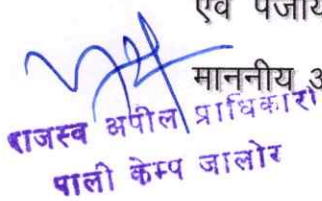 एवं पंजीय
माननीय अ
राजस्व अपील प्राधिकारी
पाली केम्प जालोर